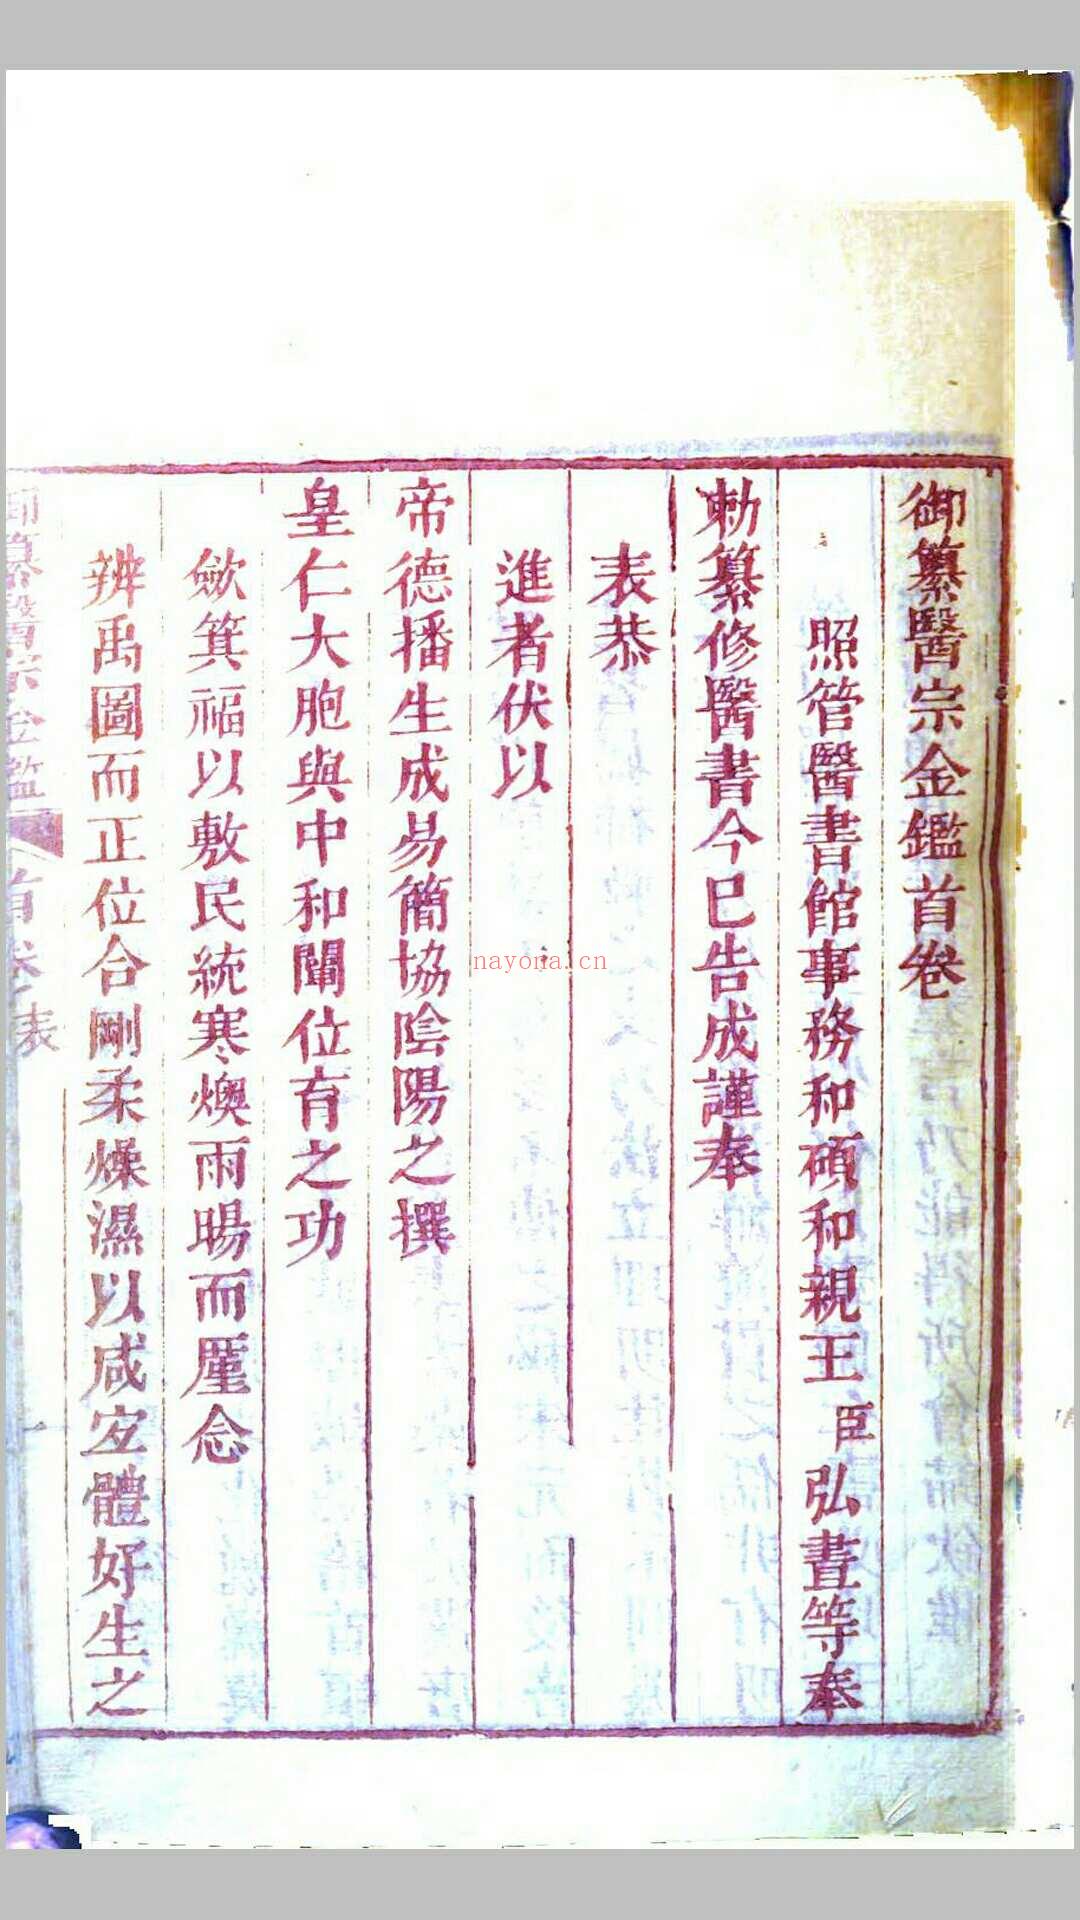 御纂醫宗金鑑首卷
照管醫書館事務和碩和親王臣弘晝等奉
勅纂修醫書今已告成謹奉
表恭
進者伏以
帝德播生成易簡協陰陽之撰
皇仁大胞與中和闡位育之功
斂箕福以敷民統寒燠雨暘而厪念
辨禹圖而正位合剛柔燥濕以咸宐體好生之
御纂醫宗金鑑 首卷 表 一
nayona.cn